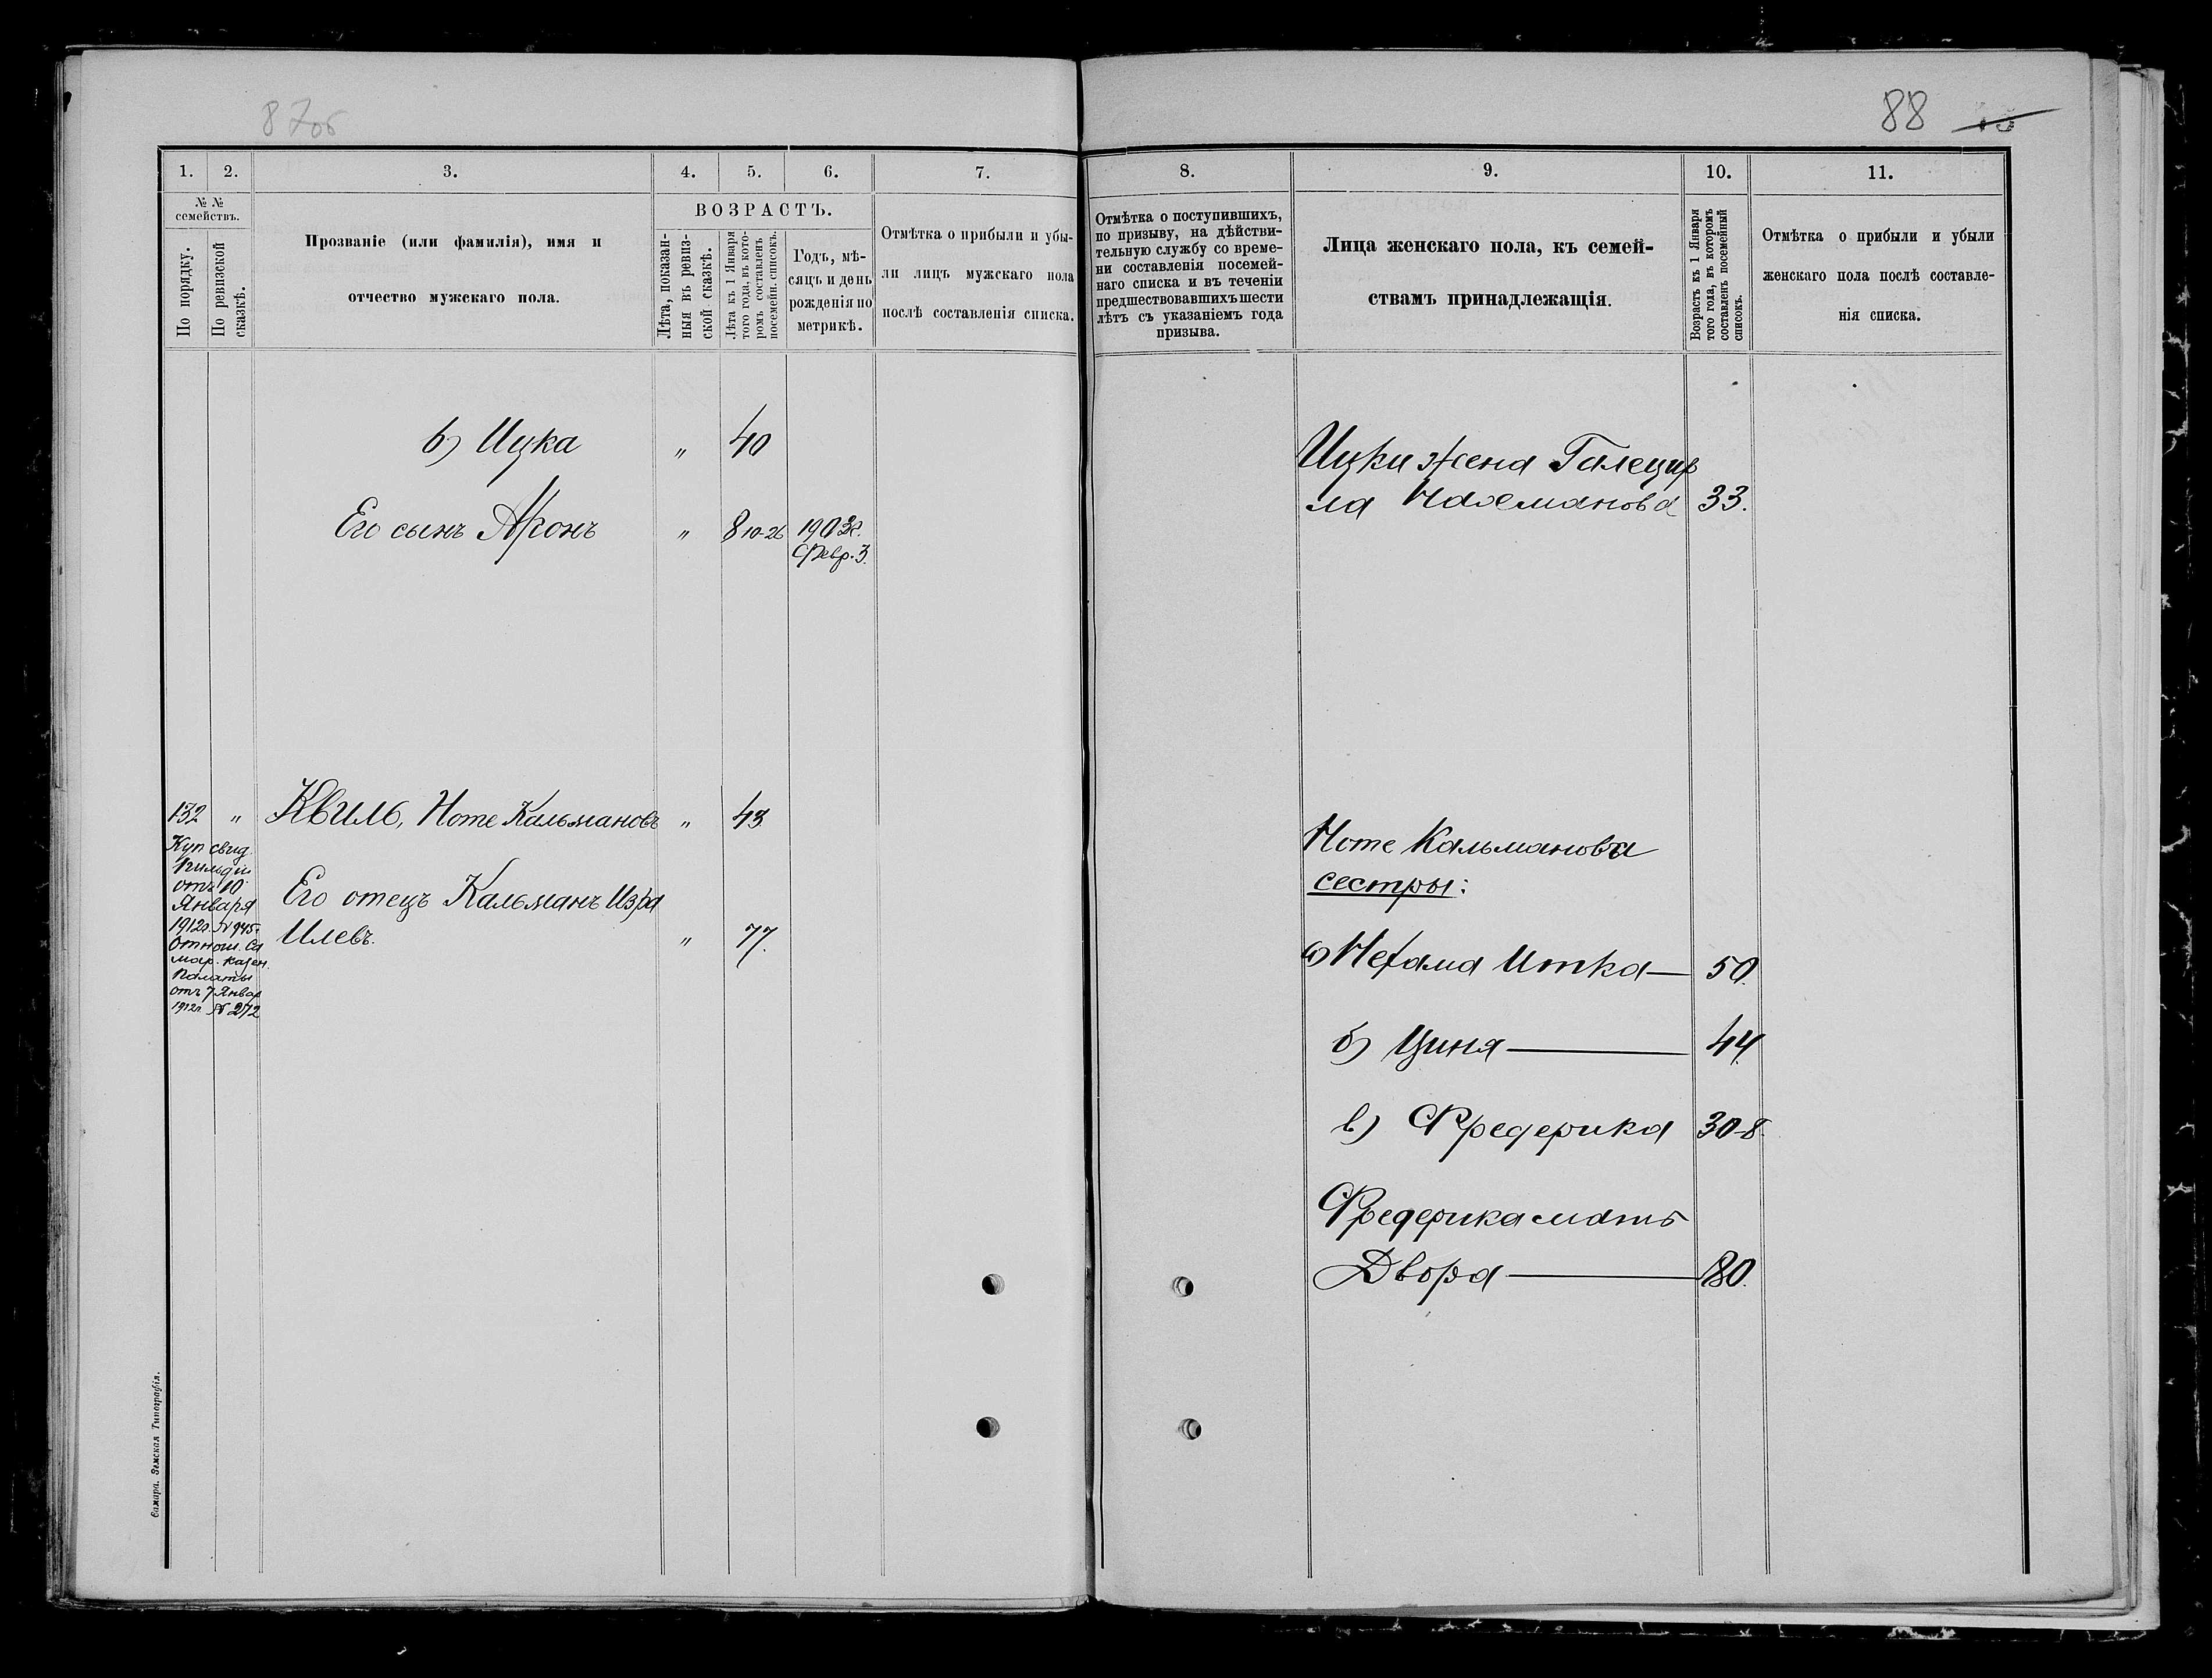 87об
1.
2.
3.
4.
5.
6.
7.
№ №
семействъ.
По порядку.
По ревизской
сказкѣ.
Прозваніе (или фамилія), имя и
отчество мужскаго пола.
ВОЗРАСТЪ.
Лѣта, показан-
ныя въ ревиз-
ской сказкѣ.
Лѣта къ 1 Января
того года, въ кото-
ромъ составленъ
посемейн. списокъ.
Годъ, мѣ-
сяцъ и день
рожденія по
метрикѣ.
Отмѣтка о прибыли и убы-
ли лицъ мужскаго пола
послѣ составленія списка.
в) Ицка " 40
Его сынъ Аронъ " 8 10-26 1903г.
Февр. 3.
132 " Квиль, Ноте Кальмановъ " 43
Куп свид.
гильдіи
отъ 10
Января
1912г. № 945
Отнош. Са
мар. Казен.
Палаты
отъ 7 Январ
1912г. № 272
Его отецъ Кальманъ Изра
илевъ. " 77.
Самара. Земская Типографія.
88
8.
9.
10.
11.
Отмѣтка о поступившихъ,
по призыву, на дѣйстви-
тельную службу со време-
ни составленія посемей-
наго списка и въ теченіи
предшествовавшихъ шести
лѣтъ съ указаніемъ года
призыва.
Лица женскаго пола, къ семей-
ствамъ принадлежащія.
Возрастъ къ 1 Января
того года, въ которомъ
составленъ посемейный
списокъ.
Отмѣтка о прибыли и убыли
женскаго пола послѣ составле-
нія списка.
Ицки жена Галецир
ла Нахманова 33.
Ноте Кальманова
сестры:
а) Нехама Итка — 50.
б) Циня — 44.
в) Фредерика 30-8.
Фредерика мать
Двора — 80.